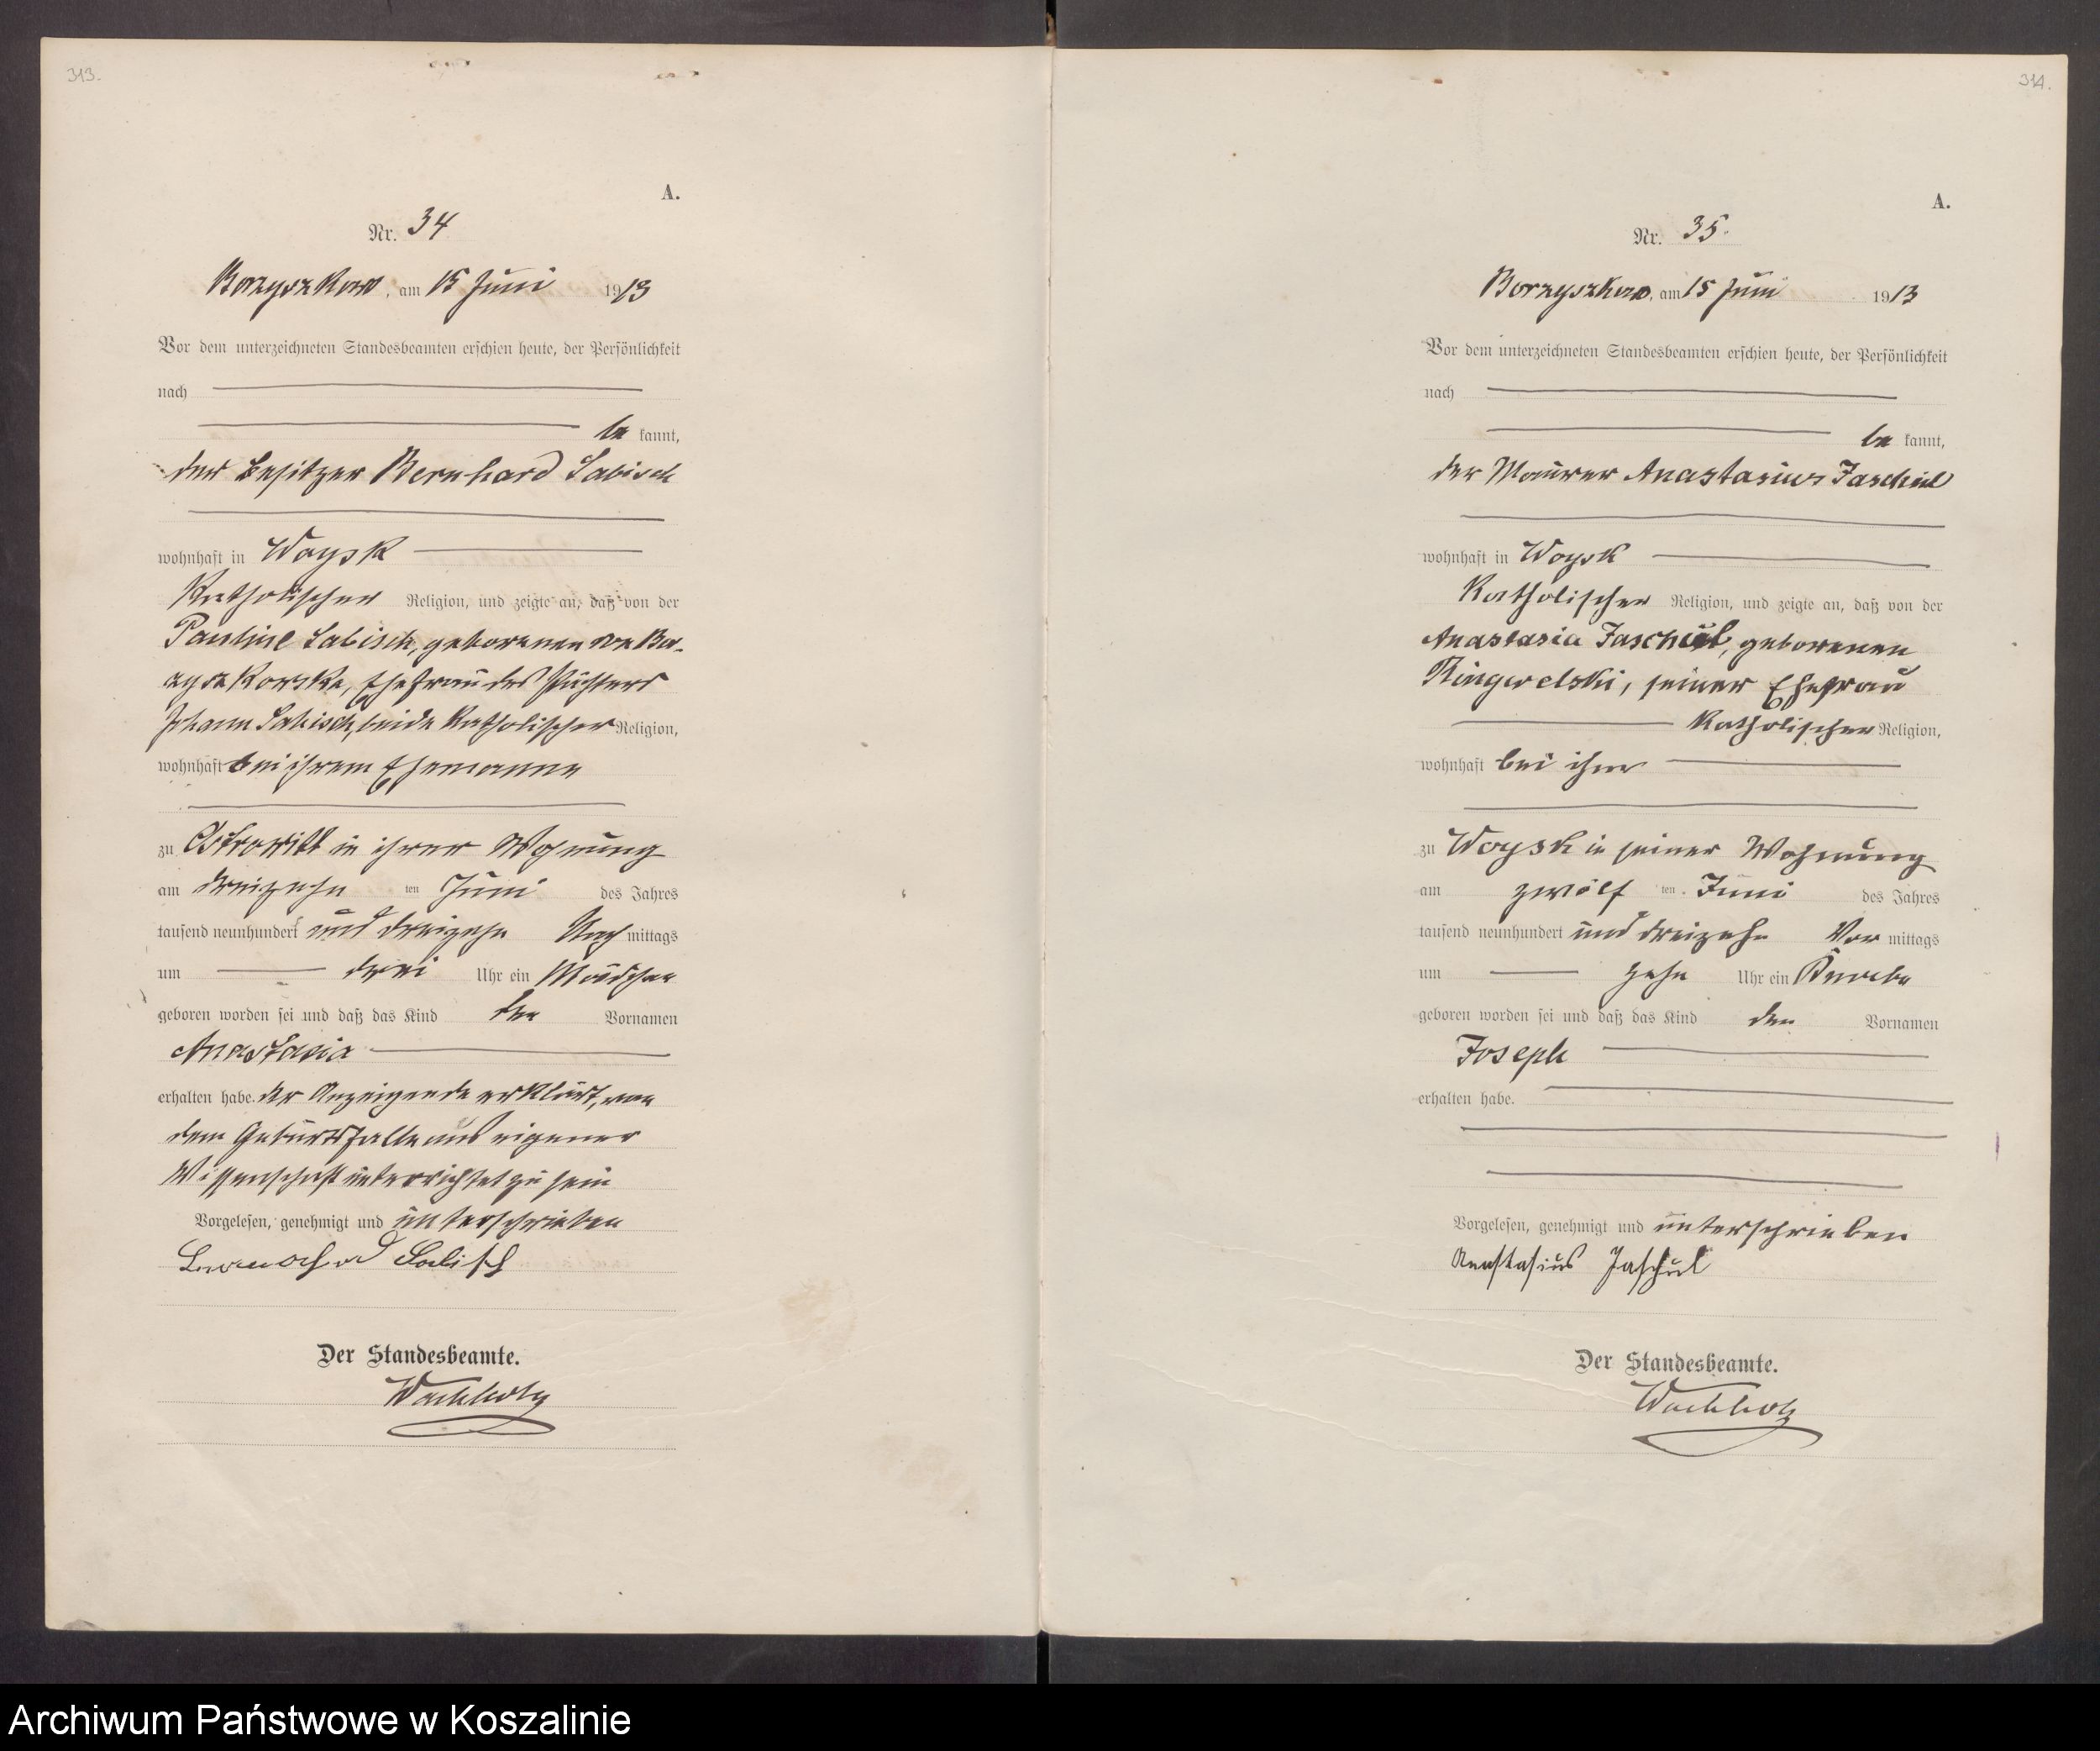 313.
A.
Nr. 34
Borzyszkow, am 15 Juni 1913
Vor dem unterzeichneten Standesbeamten erschien heute, der Persönlichkeit
nach
be kannt,
der Besitzer Bernhard Labisch
wohnhaft in Woysk
Katholischer Religion, und zeigte an, daß von der
Pauline Labisch, geborenen
Ehefrau des Pächters
Johann Labisch, beide Katholischer Religion,
wohnhaft bei ihrem Ehemanne
zu Ostrowitt in ihrer Wohnung
am dreizehn ten Juni des Jahres
tausend neunhundert und dreizehn Nach mittags
um drei Uhr ein Mädchen
geboren worden sei und daß das Kind den Vornamen
Anastasia
erhalten habe. der Anzeigende erklärt, von
dem Geburtsfalle aus eigener
Wissenschaft unterrichtet zu sein
Vorgelesen, genehmigt und unterschrieben
Bernhard Labisch
Der Standesbeamte.
Wachholz
314.
A.
Nr. 35.
Borzyszkow, am 15 Juni 1913
Vor dem unterzeichneten Standesbeamten erschien heute, der Persönlichkeit
nach
be kannt,
der Maurer Anastasius Jaschul
wohnhaft in Woysk
Katholischer Religion, und zeigte an, daß von der
Anastasia Jaschul, geborenen
Ringwelski, seiner Ehefrau
Katholischer Religion,
wohnhaft bei ihm
zu Woysk in seiner Wohnung
am zwölf ten Juni des Jahres
tausend neunhundert und dreizehn Vor mittags
um zehn Uhr ein Knabe
geboren worden sei und daß das Kind den Vornamen
Joseph
erhalten habe.
Vorgelesen, genehmigt und unterschrieben
Anastasius Jaschul
Der Standesbeamte.
Wachholz
Archiwum Państwowe w Koszalinie